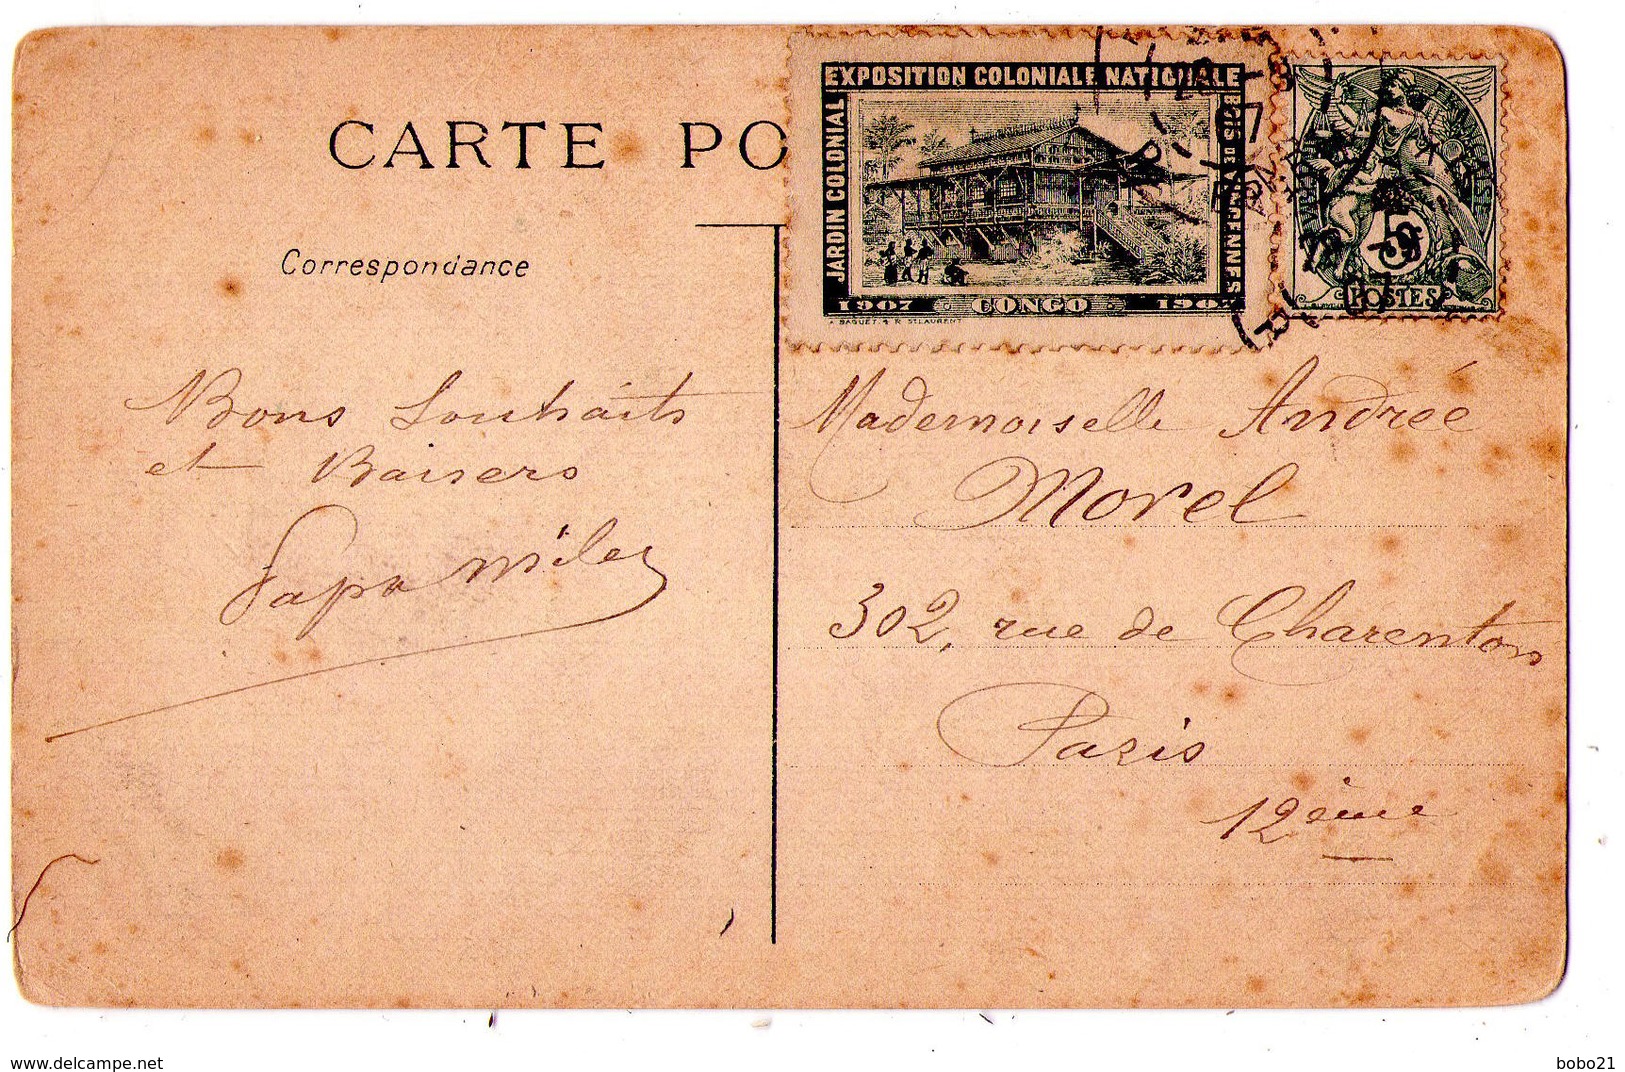 CARTE PO
Correspondance
EXPOSITION COLONIALE NATIONALE
JARDIN COLONIAL
BOIS DE VINCENNES
1907 CONGO 1907
A BAGUET & R STLAURENT
5
POSTES
Bons Souhaits
et Baisers
Papa
Mademoiselle Andrée
Morel
302, rue de Charenton
Paris
12ème
www.delcampe.net
bobo21